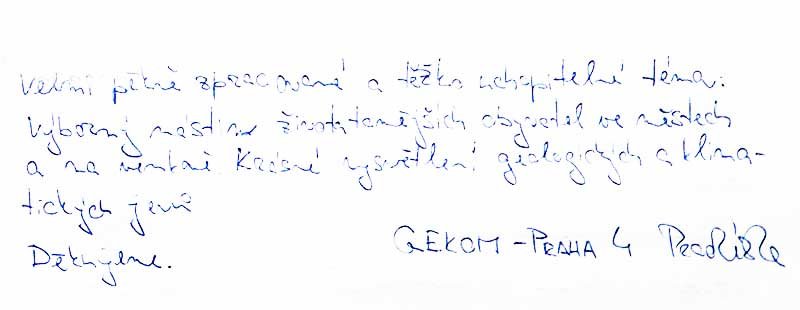 Velmi pěkně zpracované a těžko uchopitelné téma.
Výborný nástin život obyvatel ve městech
a na venkově. Krásné vysvětlení geologických a klima-
tických jevů
Děkujeme.
GEKOM - PRAHA 4